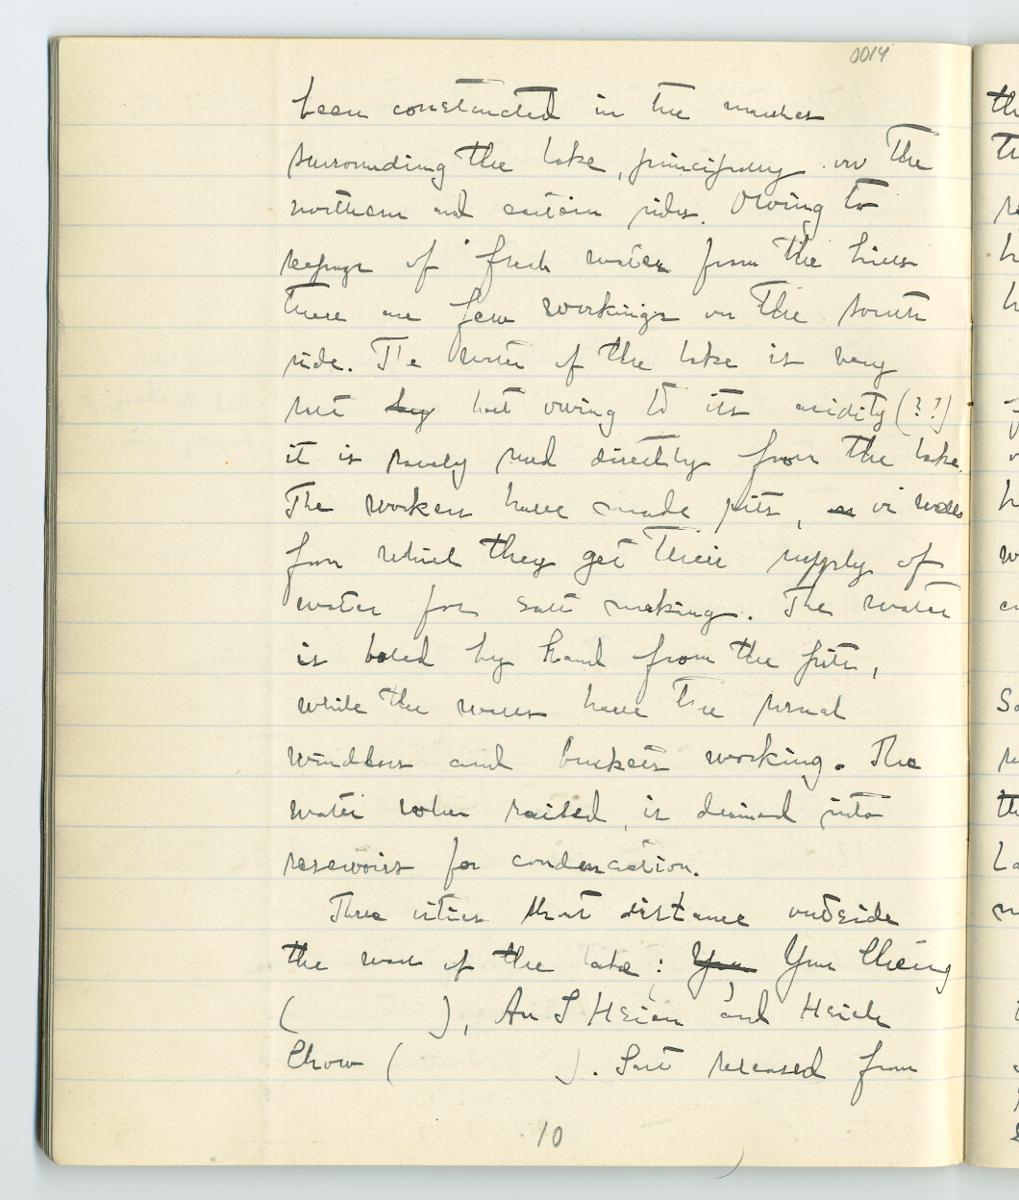 0014
been constructed in the marshes
surrounding the lake, principally on the
northern and eastern sides. Owing to
seepage of fresh water from the hills
there are few workings on the south
side. The water of the lake is very
salt but owing to its acidity (??)
it is rarely used directly from the lake.
The workers have made pits, or wells
from which they get their supply of
water for salt making. The water
is baled by hand from the pits,
while the wells have the usual
windlass and buckets working. The
water when raised, is drained into
reservoirs for condensation.
Three cities short distance outside
the wall of the lake: Yun Cheng
( ), An I Hsien and Hsieh
Chow ( ). Salt released from
10
th